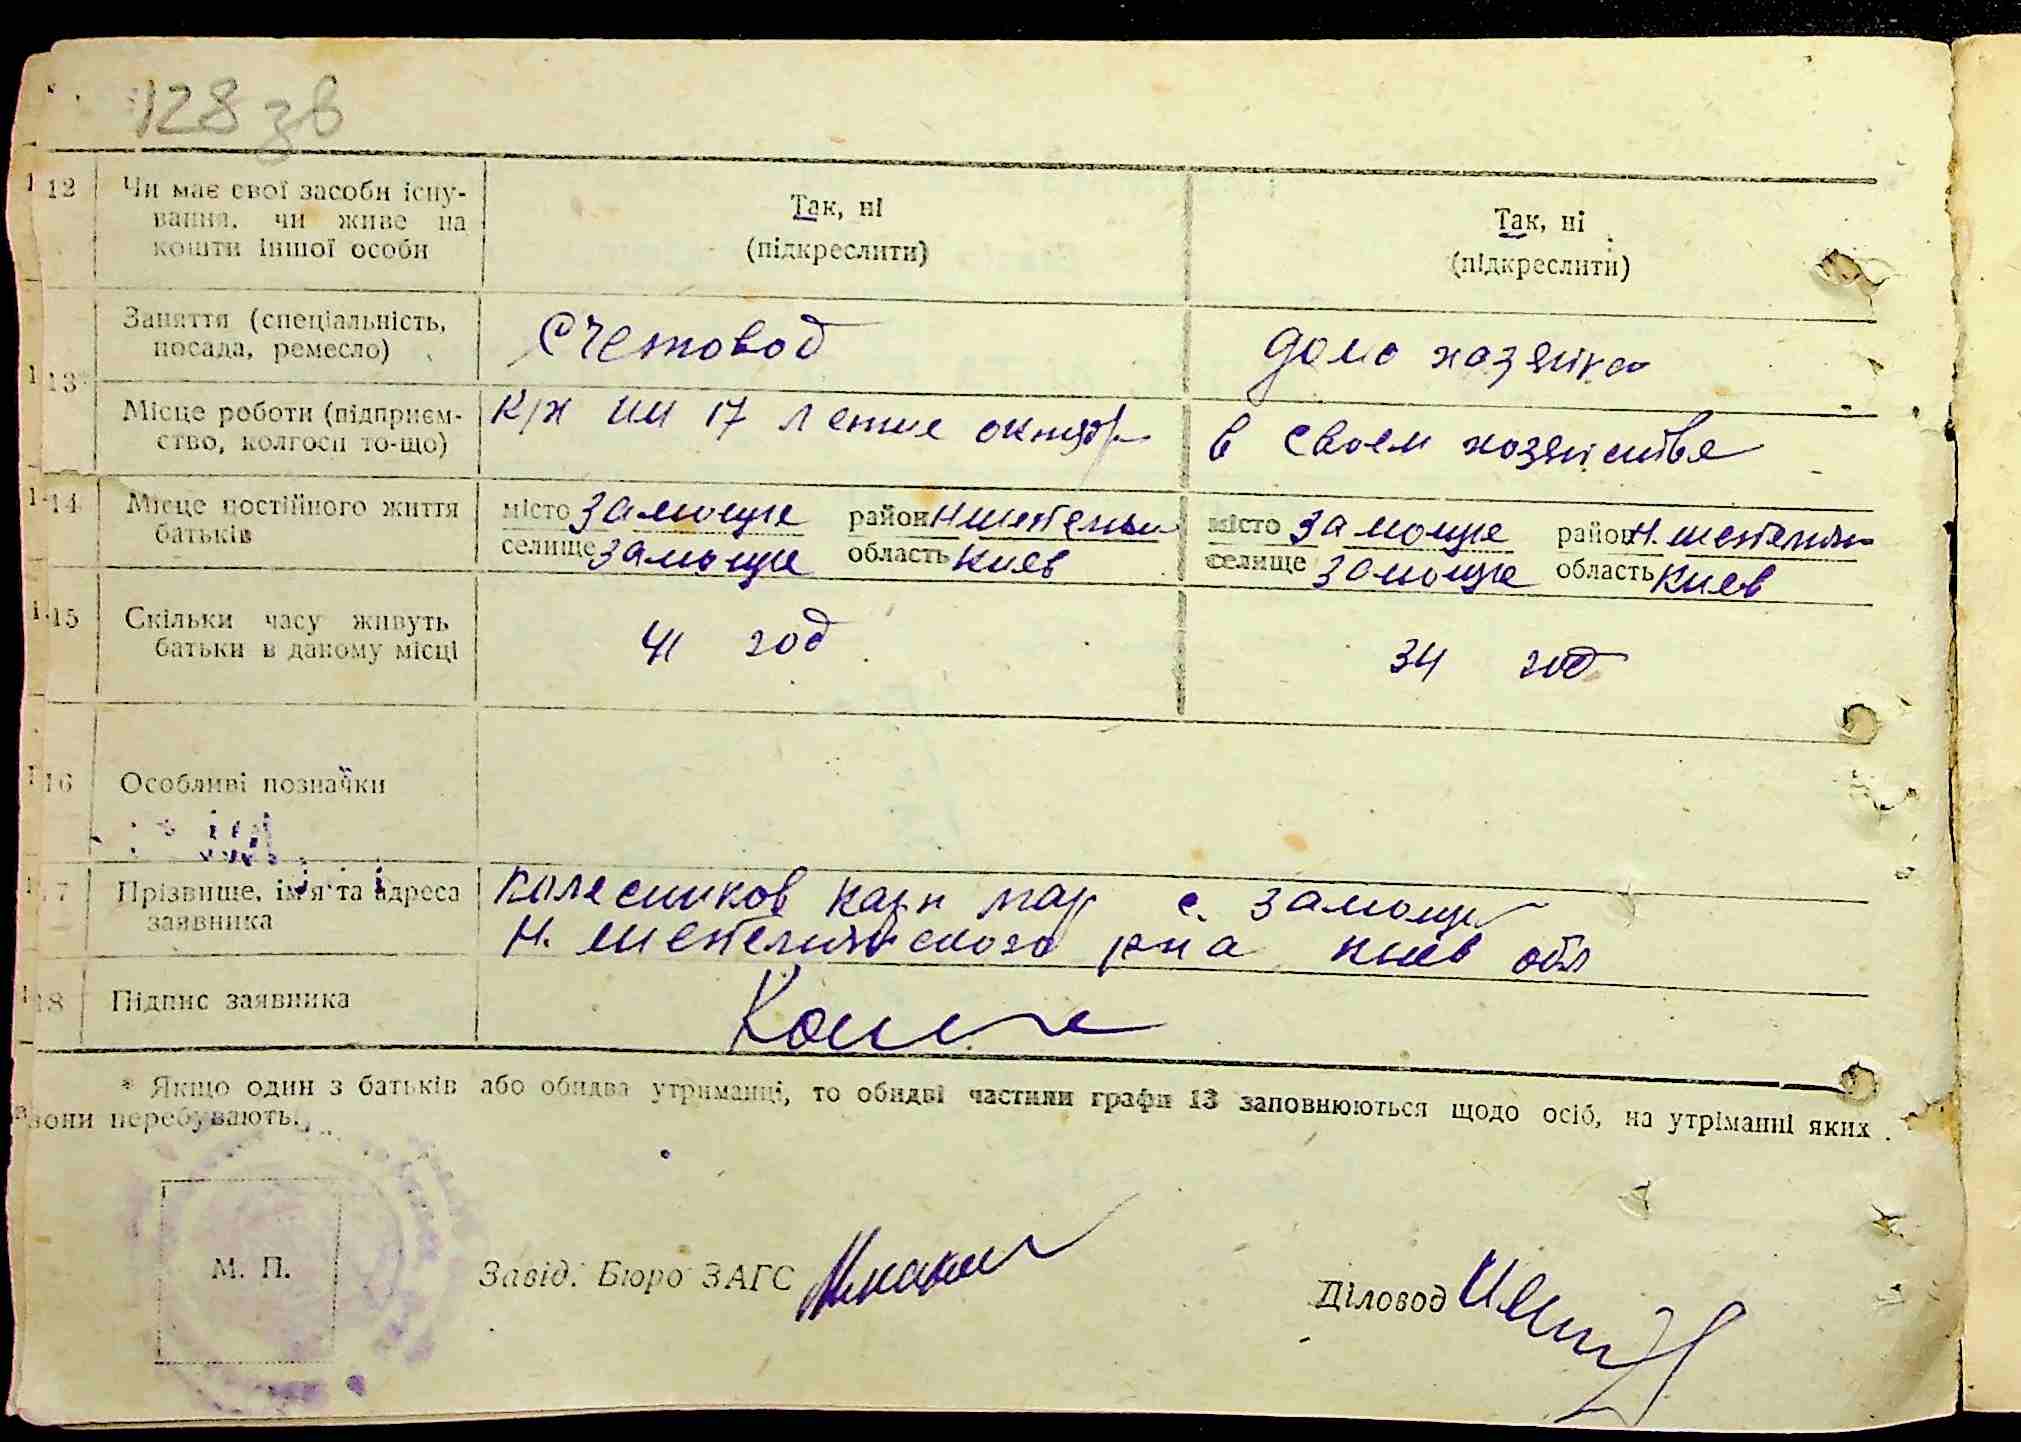 128 зв
12 Чи має свої засоби існу-
вання, чи живе на
кошти іншої особи
Так, ні
(підкреслити)
Так, ні
(підкреслити)
13*
Заняття (спеціальність,
посада, ремесло)
Счетовод
домо хазяика
Місце роботи (підприєм-
ство, колгосп то-що)
к/х им 17 летие октяб
в своем хозяистве
14 Місце постійного життя
батьків
місто Замоще район Ншепель
селище Замоще область Киев
місто Замоще район Н. шепелич
селище Замоще область Киев
15 Скільки часу живуть
батьки в даному місці
41 год
34 год
16 Особливі позначки
17 Прізвище, ім'я та адреса
заявника
Колесников Карп Мар с. Замоще
Н. Шепеличского рна Киев обл
18 Підпис заявника
* Якщо один з батьків або обидва утриманці, то обидві частини графи 13 заповнюються щодо осіб, на утріманні яких
вони перебувають.
М. П.
Завід. Бюро ЗАГС
Діловод